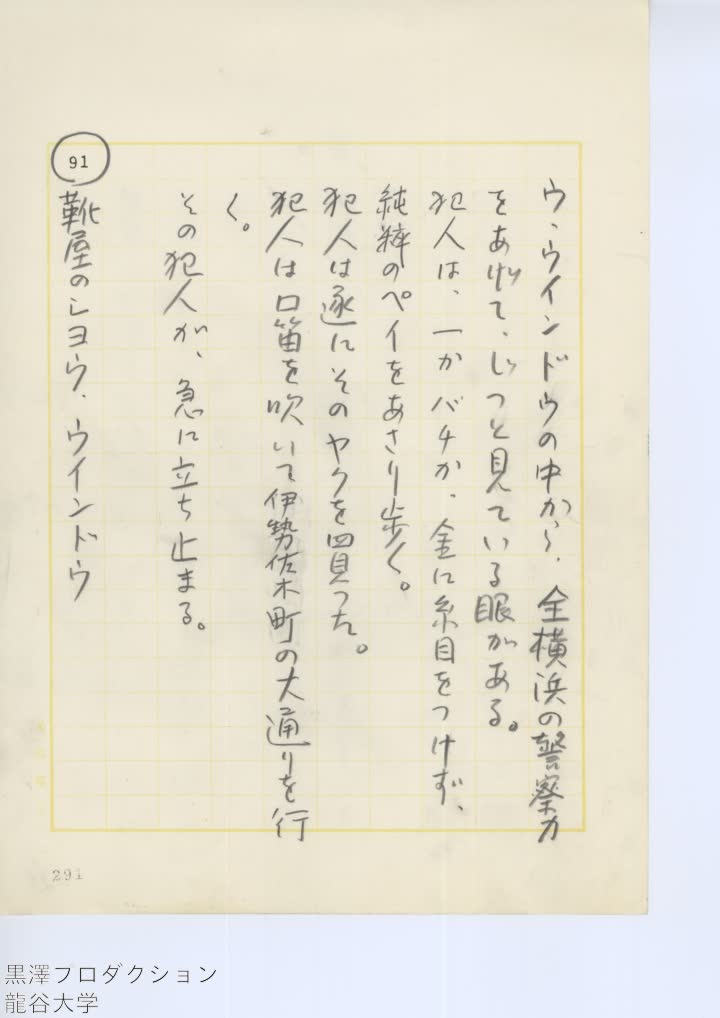 ウ・ウインドウの中から、全横浜の警察力
をあげて、じっと見ている眼がある。
犯人は、一かバチか、金に糸目をつけず、
純粋のペイをあさり歩く。
犯人は遂にそのヤクを買った。
犯人は口笛を吹いて伊勢佐木町の大通りを行
く。
その犯人が、急に立ち止まる。
91
靴屋のショウ・ウインドウ
291
黒澤プロダクション
龍谷大学